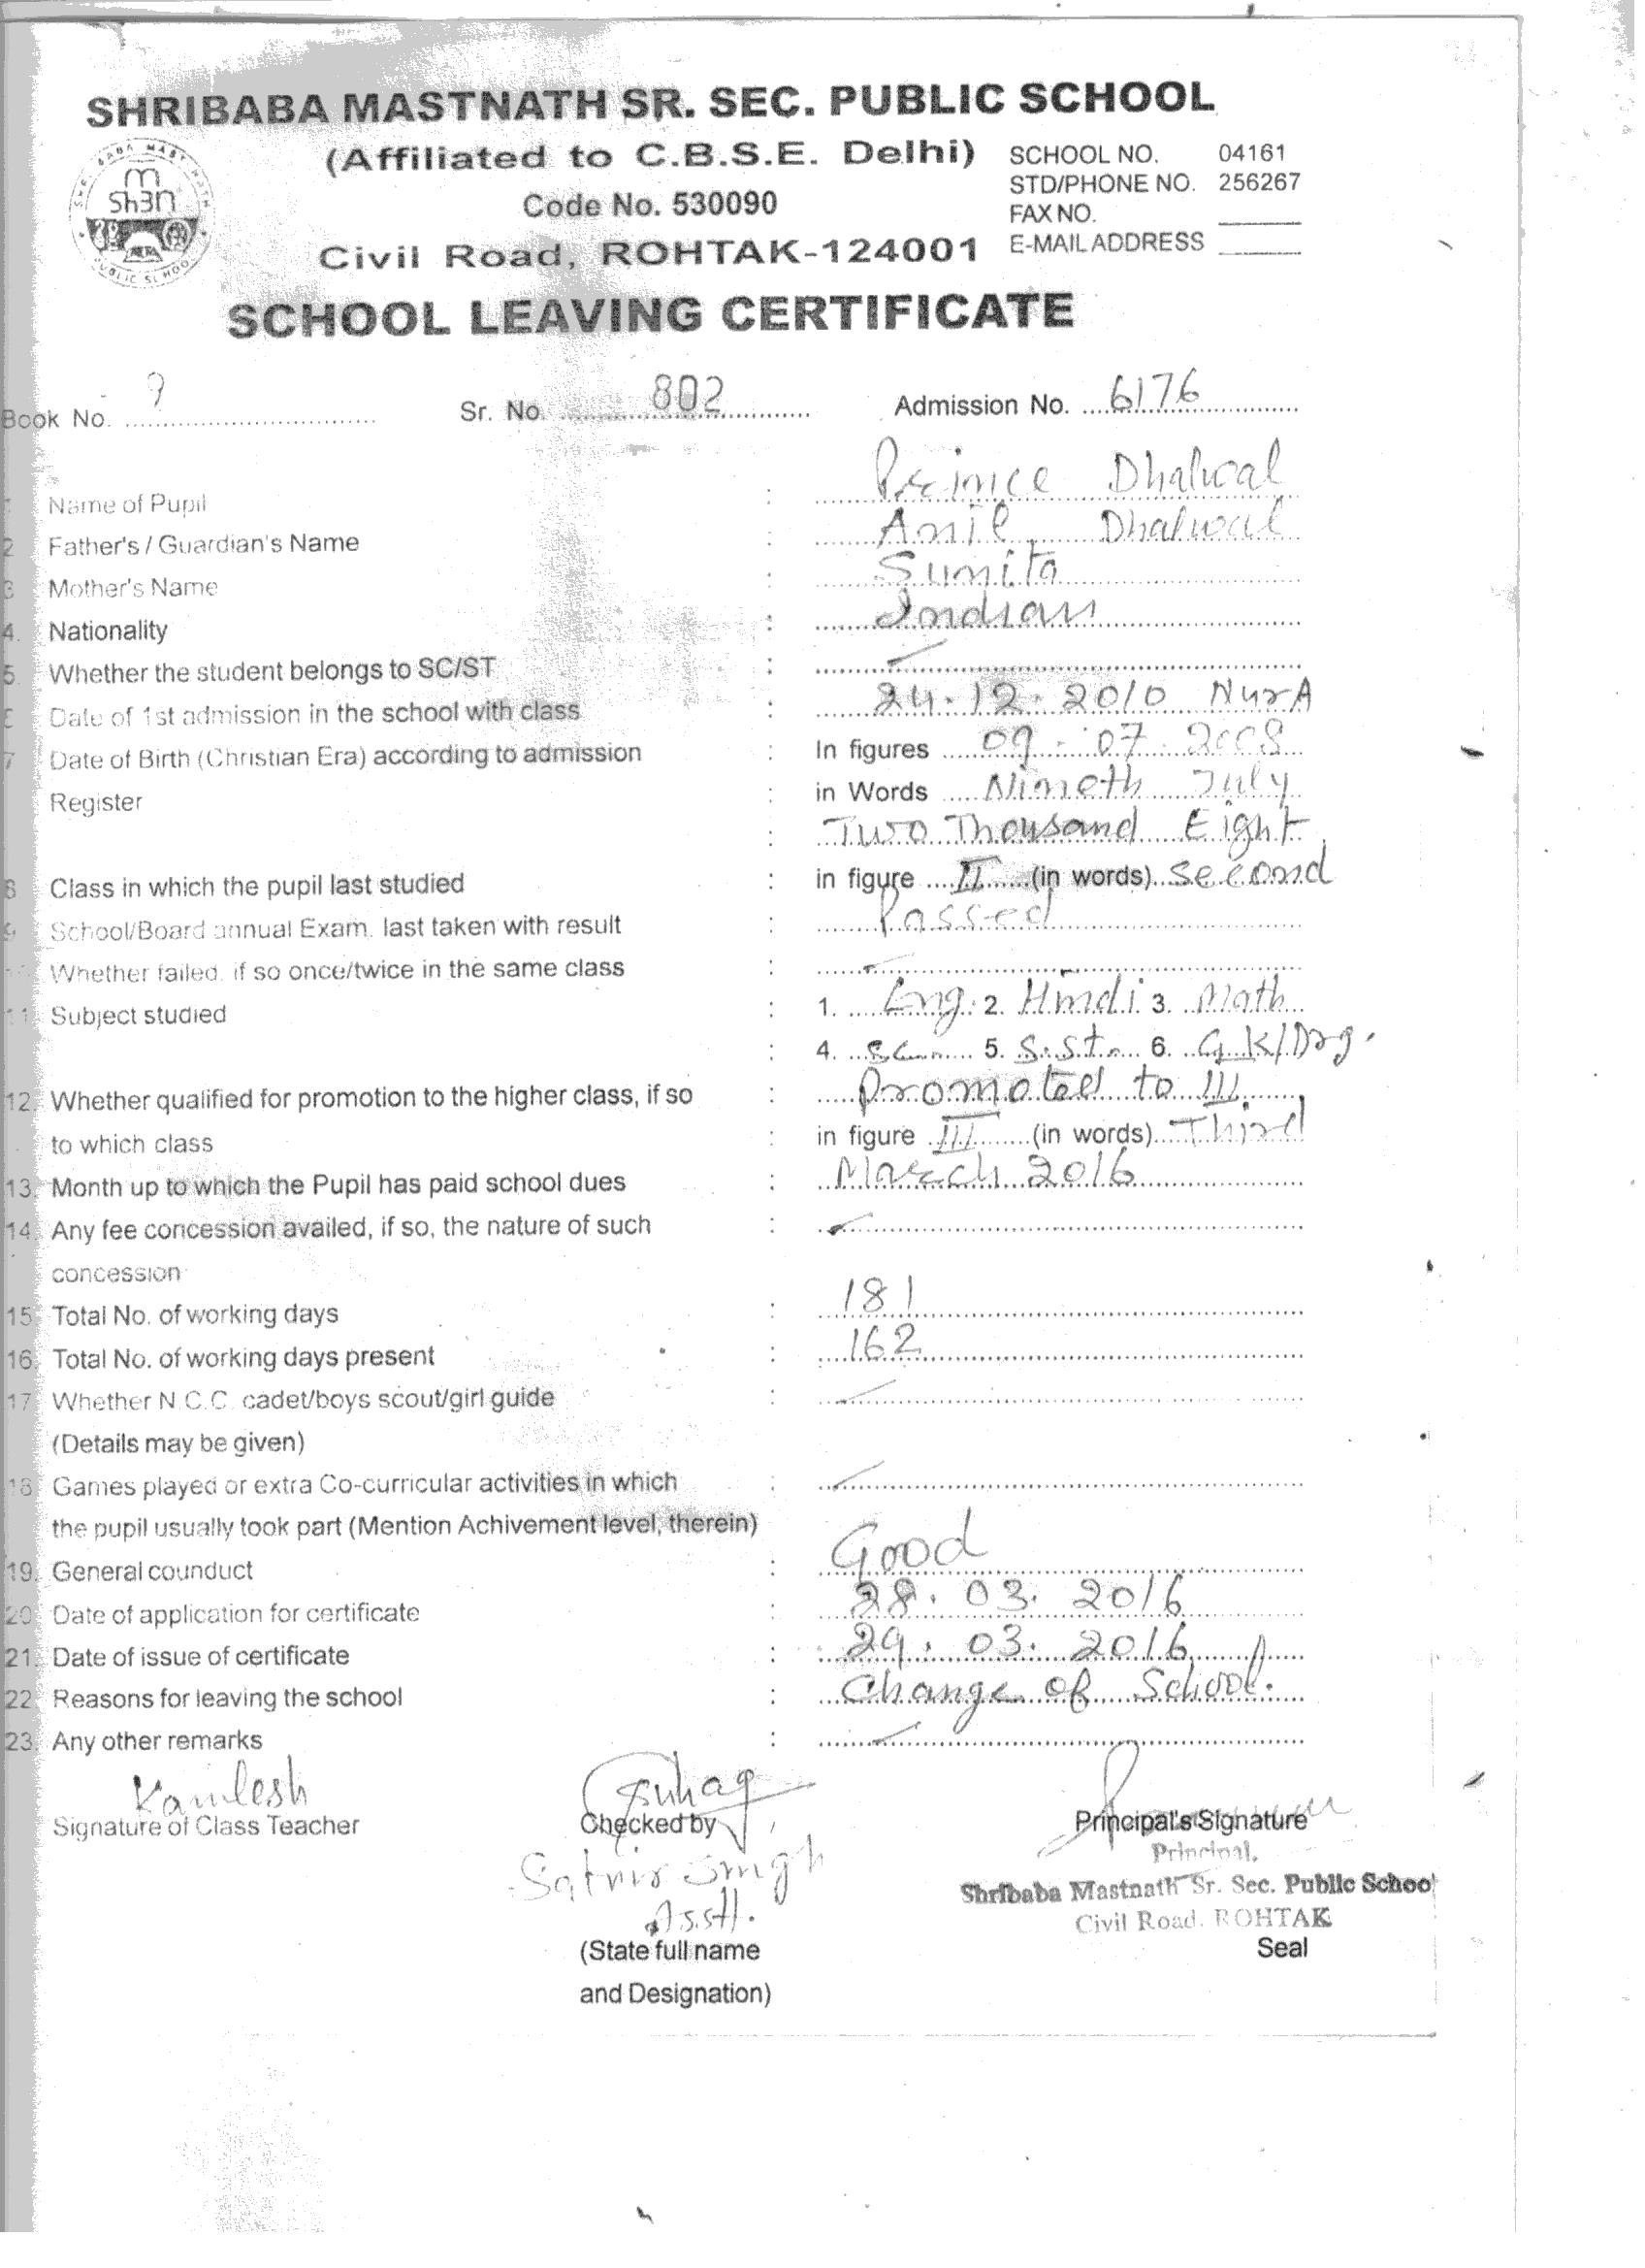 SHRIBABA MASTNATH SR. SEC. PUBLIC SCHOOL
(Affiliated to C.B.S.E. Delhi)
SCHOOL NO. 04161
STD/PHONE NO. 256267
Code No. 530090
FAX NO.
Civil Road, ROHTAK-124001
E-MAIL ADDRESS
SCHOOL LEAVING CERTIFICATE
Book No. 9 Sr. No. 802 Admission No. 6176
Name of Pupil : Prince Dhalwal
2 Father's / Guardian's Name : Anil Dhalwal
3 Mother's Name : Sumita
4. Nationality : Indian
5. Whether the student belongs to SC/ST :
6 Date of 1st admission in the school with class : 24.12.2010 Nur A
7 Date of Birth (Christian Era) according to admission : In figures 09-07-2008
Register : in Words Nineth July
: Two Thousand Eight
8 Class in which the pupil last studied : in figure II (in words) Second
9 School/Board annual Exam. last taken with result : Passed
Whether failed, if so once/twice in the same class :
11 Subject studied : 1. Eng. 2. Hindi 3. Math
: 4. Sc. 5. S.St. 6. G.K/Drg.
12. Whether qualified for promotion to the higher class, if so : Promoted to III
to which class : in figure III (in words) Third
13. Month up to which the Pupil has paid school dues : March 2016
14. Any fee concession availed, if so, the nature of such :
concession
15. Total No. of working days : 181
16. Total No. of working days present : 162
17. Whether N.C.C. cadet/boys scout/girl guide :
(Details may be given)
18 Games played or extra Co-curricular activities in which :
the pupil usually took part (Mention Achivement level, therein)
19. General counduct : Good
20. Date of application for certificate : 28.03.2016
21. Date of issue of certificate : 29.03.2016
22. Reasons for leaving the school : Change of School.
23. Any other remarks :
Kamlesh
Signature of Class Teacher
Checked by
Principal's Signature
Satvir Singh
Asstt.
Principal.
Shribaba Mastnath Sr. Sec. Public School
Civil Road, ROHTAK
(State full name
and Designation)
Seal